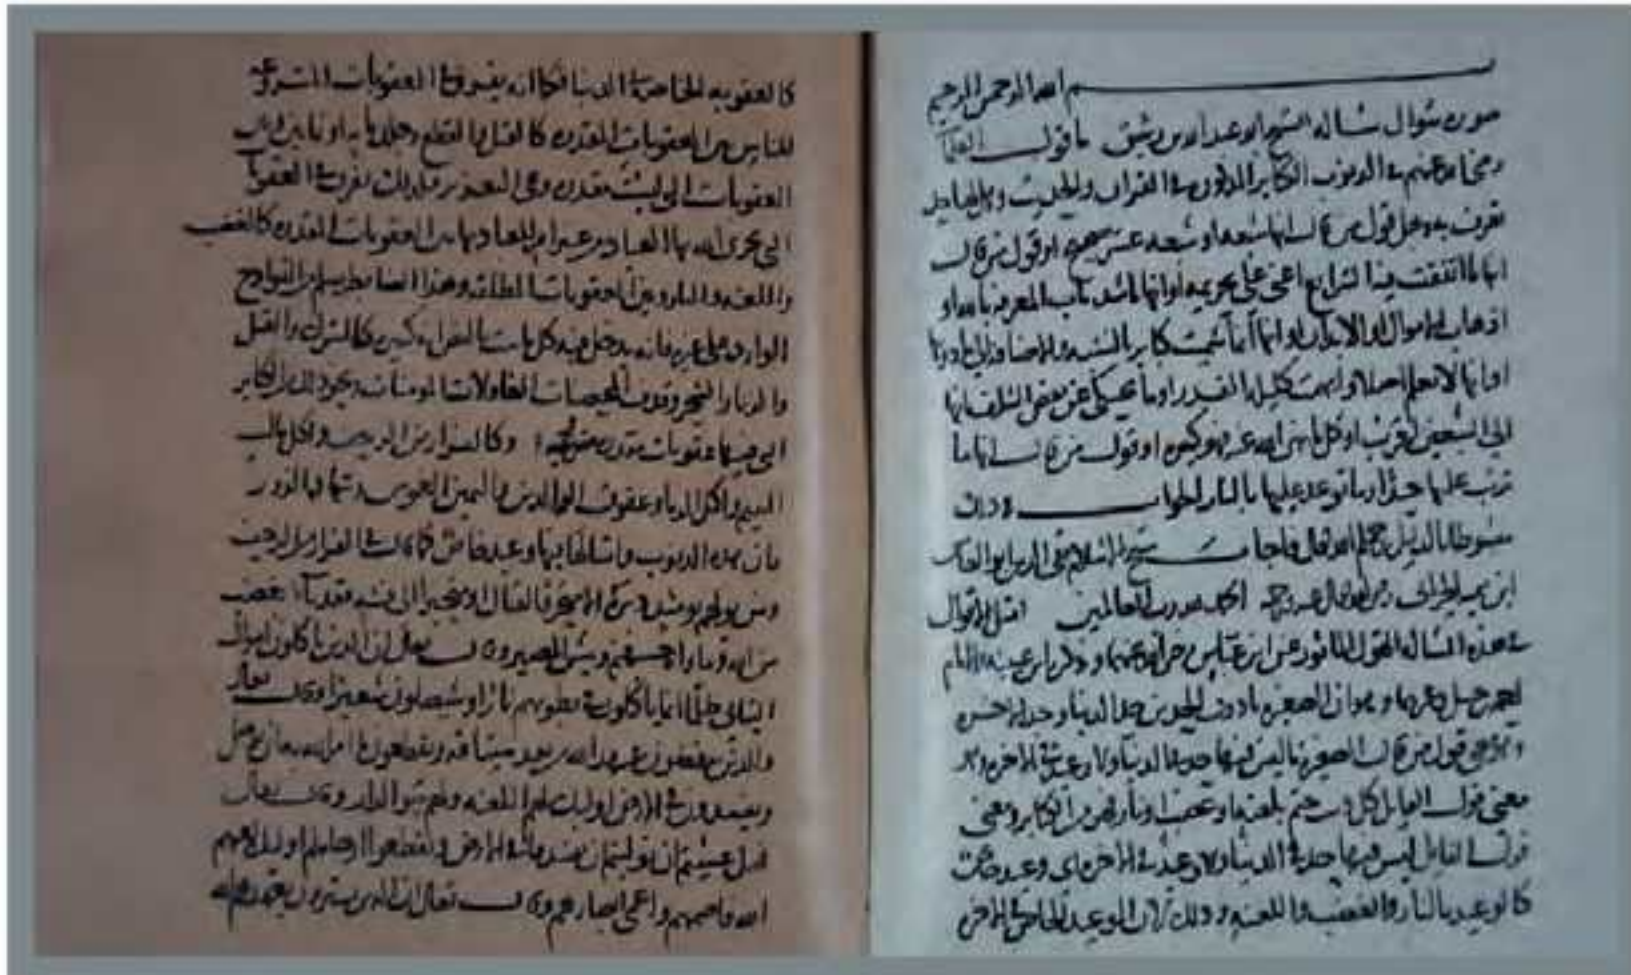 بسم الله الرحمن الرحيم
صورة سؤال سأله الشيخ ابو عبد الله بن رشيق ما قول العلماء
رضي الله عنهم في الذنوب الكبائر المذكورة في القران والحديث وهل لها حد
تعرف به وهل قول من قال انها سبعة او سبعة عشر صحيح او قول من قال
انها ما اتفقت فيه الشرايع اعني على تحريمه او انها ما تسد باب المعرفة بالله او
اذهاب الاموال والابدان او انها انما سميت كبائر بالنسبة والاضافة الى ما دونها
او انها لا تعلم اصلا وابهمت كليلة القدر او ما يحكى عن بعض السلف انها
الى السبعين اقرب او كل ما نهى الله عنه فهو كبيرة او قول من قال انها ما
ترتب عليها حد او ما توعد عليها بالنار الجواب
فاجاب شيخ الاسلام تقي الدين ابو العباس
ابن تيمية الحراني الحمد لله رب العالمين امثل الاقوال
في هذه المسألة القول المأثور عن ابن عباس رضي الله عنهما وذكره ابو عبيد والامام
احمد بن حنبل وغيرهما وهو ان الصغيرة ما دون الحدين حد الدنيا وحد الاخرة
وهو معنى قول من قال الصغيرة ما ليس فيها حد في الدنيا ولا وعيد في الاخرة وهو
معنى قول القايل كل ذنب ختم بلعنة او غضب او نار فهو من الكبائر ومعنى
قول القايل ليس فيها حد في الدنيا ولا وعيد في الاخرة اي وعيد خاص
كالوعيد بالنار والغضب واللعنة وذلك لان الوعيد الخاص في الاخرة
كالعقوبة الخاصة في الدنيا فكما انه يفرق في العقوبات المشروعة
للناس بين العقوبات المقدرة كالقتل والقطع وجلد ماية او ثمانين وبين
العقوبات التي ليست مقدرة وهي التعزير فكذلك يفرق في العقوبات
التي يجزي الله بها العباد في غير امر العباد بها بين العقوبات المقدرة كالغضب
واللعنة والنار وبين العقوبات المطلقة وهذا الضابط يسلم من القوادح
الواردة على غيره فانه يدخل فيه كل ما ثبت بالنص انه كبيرة كالشرك والقتل
والزنا والسحر وقذف المحصنات الغافلات المومنات ونحو ذلك من الكبائر
التي فيها عقوبات مقدرة مشروعة وكالفرار من الزحف واكل مال
اليتيم واكل الربا وعقوق الوالدين واليمين الغموس وشهادة الزور
فان هذه الذنوب وامثالها فيها وعيد خاص كما قال في الفرار من الزحف
ومن يولهم يومئذ دبره الا متحرفا لقتال او متحيزا الى فئة فقد باء بغضب
من الله وماواه جهنم وبئس المصير وقال تعالى ان الذين ياكلون اموال
اليتامى ظلما انما ياكلون في بطونهم نارا وسيصلون سعيرا وقال تعالى
والذين ينقضون عهد الله من بعد ميثاقه ويقطعون ما امر الله به ان يوصل
ويفسدون في الارض اوليك لهم اللعنة ولهم سوء الدار وقال تعالى
فهل عسيتم ان توليتم ان تفسدوا في الارض وتقطعوا ارحامكم اوليك الذين لعنهم
الله فاصمهم واعمى ابصارهم وقال تعالى ان الذين يشترون بعهد الله